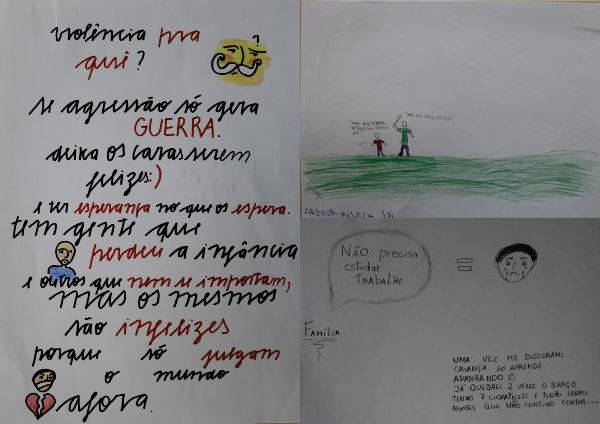 violência pra
quê?
?
se agressão só gera
GUERRA.
deixa os caras serem
felizes:)
e ter esperança no que os espera.
tem gente que
perdeu a infância
e outros que nem se importam,
mas os mesmos
são infelizes
porque só julgam
o mundo
afora.
Não precisa
estudar
TRABALHE
=
FAMÍLIA
UMA VEZ ME DISSERAM:
CRIANÇA SÓ APRENDE
APANHANDO
JÁ QUEBREI 2 VEZES O BRAÇO
TENHO 7 CICATRIZES E TENHO
QUE NÃO CONSIGO CONTAR...